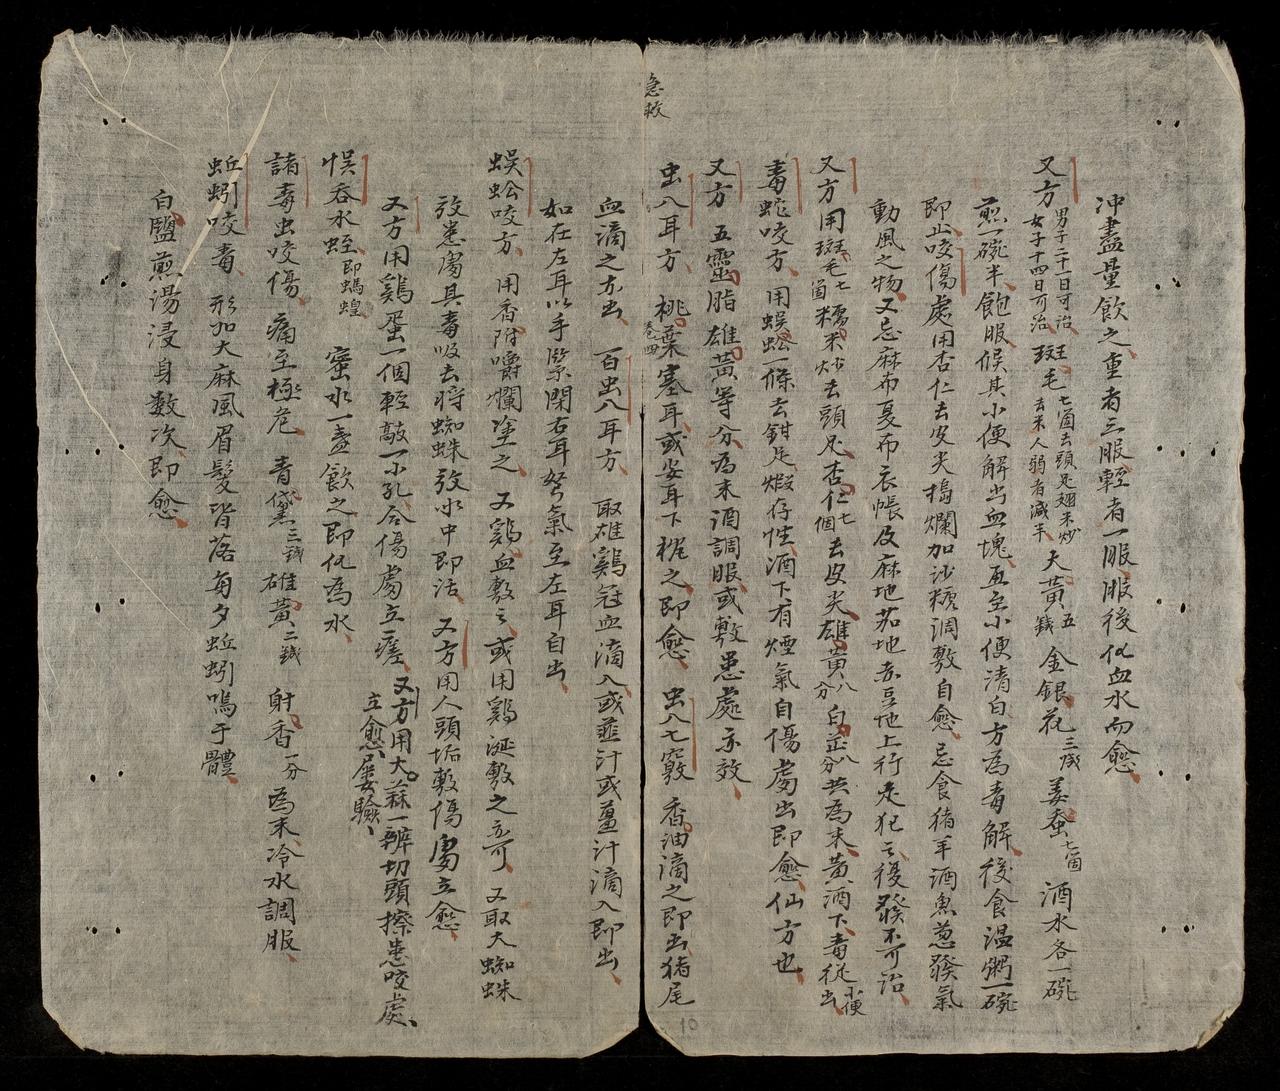 冲盡量飲之重者三服輕者一服服後似血水而愈
又方男子二十一日可治女子十四日可治斑毛七箇去頭足翅米炒去米人弱者減半大黃五錢金銀花三錢姜蚕七箇酒水各一碗
煎一碗半飽服候其小便解出血塊血至小便清白方為毒解後食温粥一碗
即止咬傷處用杏仁去皮尖搗爛加沙糖調敷自愈忌食猪羊酒魚葱發氣
動風之物又忌麻布夏布衣帳及麻地茄地赤豆地上行走犯之後發不可治
又方用斑毛七箇糯米炒去頭足杏仁七個去皮尖雄黃八分白芷八分共為末黃酒下毒從小便出
毒蛇咬方用蜈蚣一條去鉗足煅存性酒下有煙氣自傷處出即愈仙方也
又方五靈脂雄黃等分為末酒調服或敷患處亦效
虫入耳方桃葉塞耳或安耳下枕之即愈虫入七竅香油滴之即出猪尾
急救
卷四
10
血滴之亦出百虫入耳方取雄雞冠血滴入或韮汁或薑汁滴入即出
如在左耳以手緊閉右耳努氣至左耳自出
蜈蚣咬方用香附嚼爛塗之又鷄血敷之或用鷄涎敷之亦可又取大蜘蛛
放患處具毒吸去將蜘蛛放水中即活又方用人頭垢敷傷處立愈
又方用鷄蛋一個輕敲一小孔合傷處立瘥又方用大蒜一瓣切頭擦患咬處
立愈屡驗
悞吞水蛭即螞蝗蜜水一盞飲之即化為水
諸毒虫咬傷痛至極危青黛三錢雄黃二錢射香一分為末冷水調服
蚯蚓咬毒形如大麻風眉髮皆落每夕蚯蚓鳴于體
白鹽煎湯浸身數次即愈